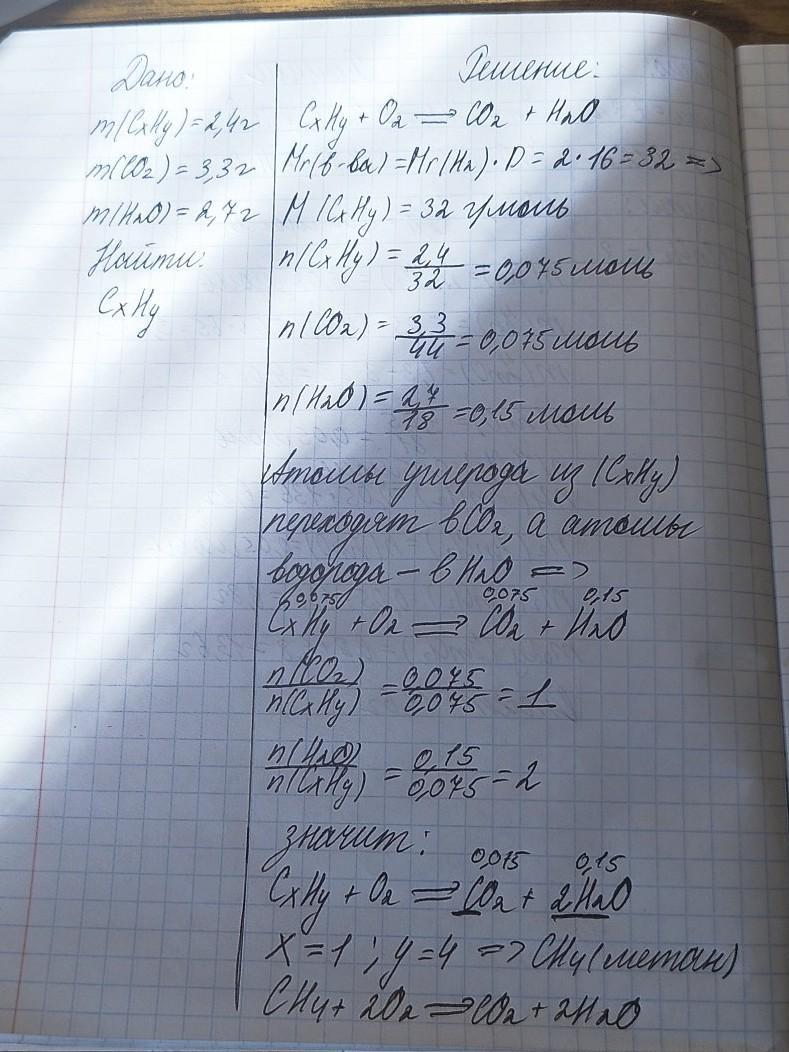 Дано:
m(CxHy)=2,4г
m(CO2)=3,3г
m(H2O)=2,7г
Найти:
CxHy
Решение:
CxHy + O2 => CO2 + H2O
Mr(в-ва)=Mr(H2)·D=2·16=32 =>
M(CxHy)=32 г/моль
n(CxHy)=2,4/32=0,075моль
n(CO2)=3,3/44=0,075моль
n(H2O)=2,7/18=0,15 моль
Атомы углерода из (CxHy)
переходят в CO2, а атомы
водорода – в H2O =>
0,075 0,075 0,15
CxHy + O2 => CO2 + H2O
n(CO2)/n(CxHy)=0,075/0,075=1
n(H2O)/n(CxHy)=0,15/0,075=2
значит:
0,075 0,15
CxHy + O2 => CO2 + 2H2O
X=1; y=4 => CH4(метан)
CH4+ 2O2=>CO2+2H2O